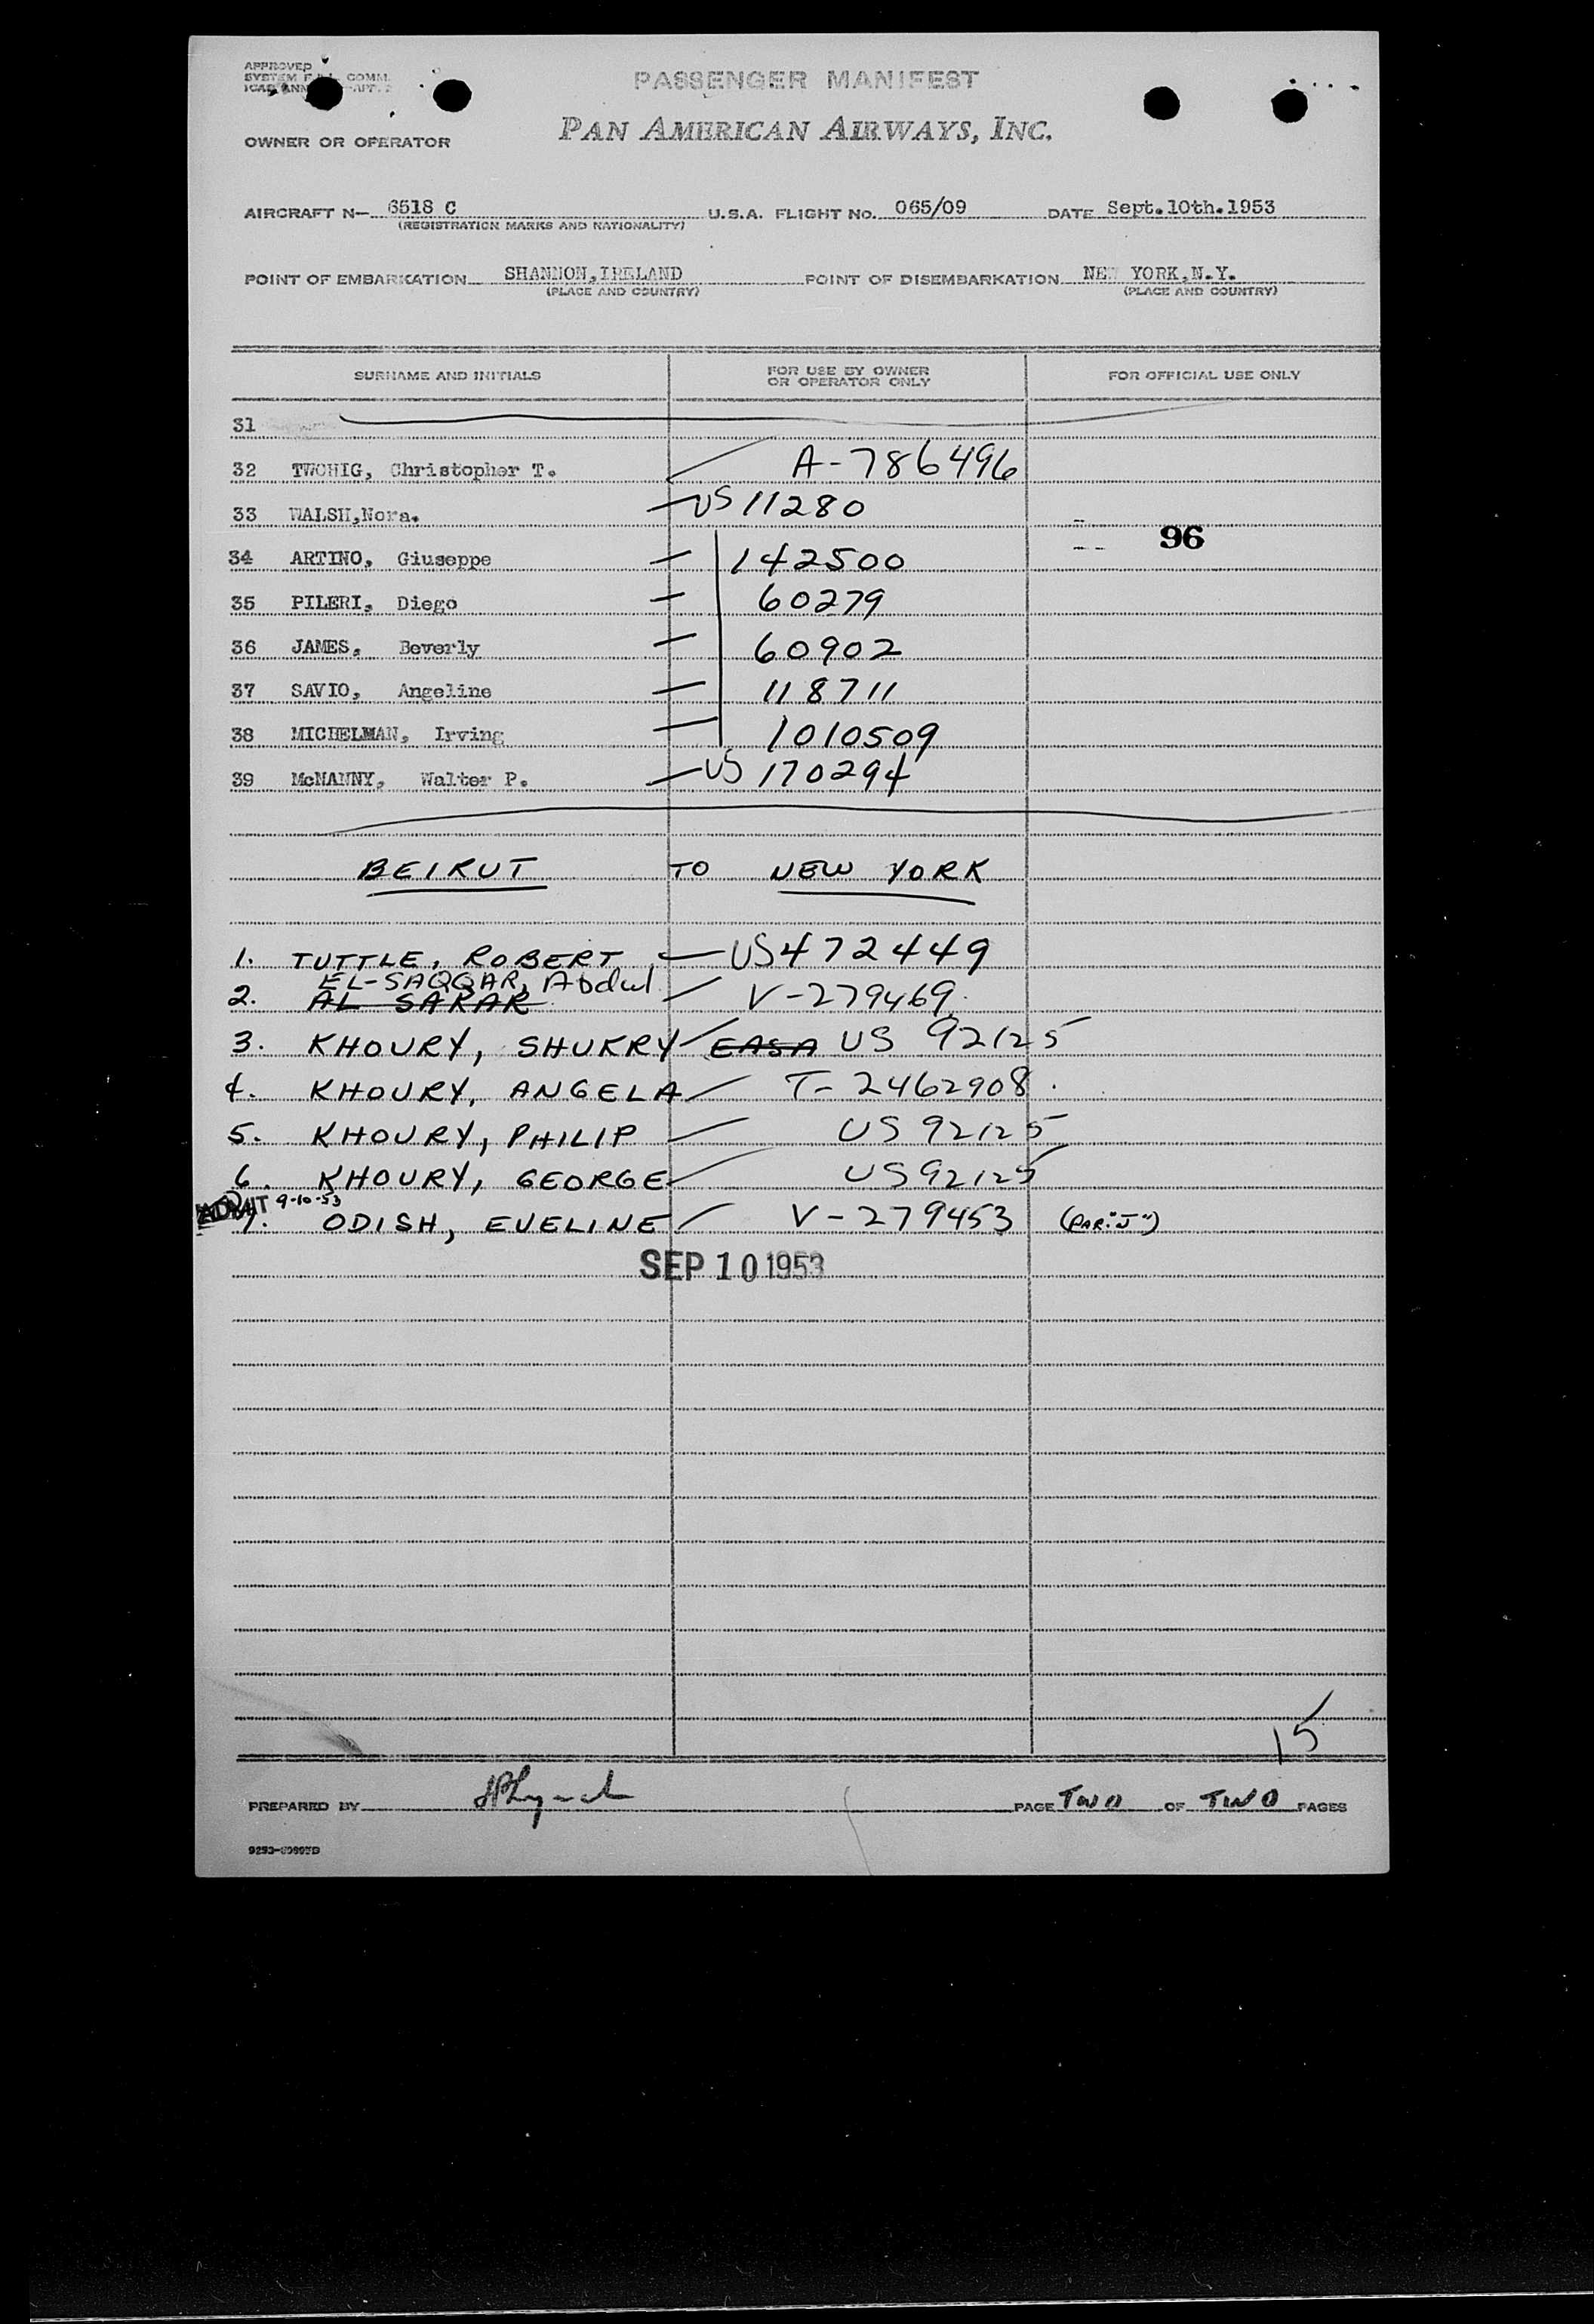 APPROVED
SYSTEM COMM.
PASSENGER MANIFEST
OWNER OR OPERATOR PAN AMERICAN AIRWAYS, INC.
AIRCRAFT N— 6518 C U.S.A. FLIGHT NO. 065/09 DATE Sept.10th.1953
(REGISTRATION MARKS AND NATIONALITY)
POINT OF EMBARKATION SHANNON,IRELAND POINT OF DISEMBARKATION NEW YORK,N.Y.
(PLACE AND COUNTRY) (PLACE AND COUNTRY)
SURNAME AND INITIALS FOR USE BY OWNER OR OPERATOR ONLY FOR OFFICIAL USE ONLY
31
32 TWOHIG, Christopher T. A-786496
33 WALSH,Nora. US 11280
96
34 ARTINO, Giuseppe 142500
35 PILERI, Diego 60279
36 JAMES, Beverly 60902
37 SAVIO, Angeline 118711
38 MICHELMAN, Irving 1010509
39 McNANNY, Walter P. US 170294
BEIRUT TO NEW YORK
1. TUTTLE, ROBERT US 472449
EL-SAQQAR, Abdul
2. AL SAKAR V-279469
3. KHOURY, SHUKRY EASA US 92125
4. KHOURY, ANGELA T-2462908
5. KHOURY, PHILIP US 92125
6. KHOURY, GEORGE US 92125
ADMIT 9-10-53
7. ODISH, EVELINE V-279453 (PAR."J")
SEP 10 1953
15
PREPARED BY PAGE TWO OF TWO PAGES